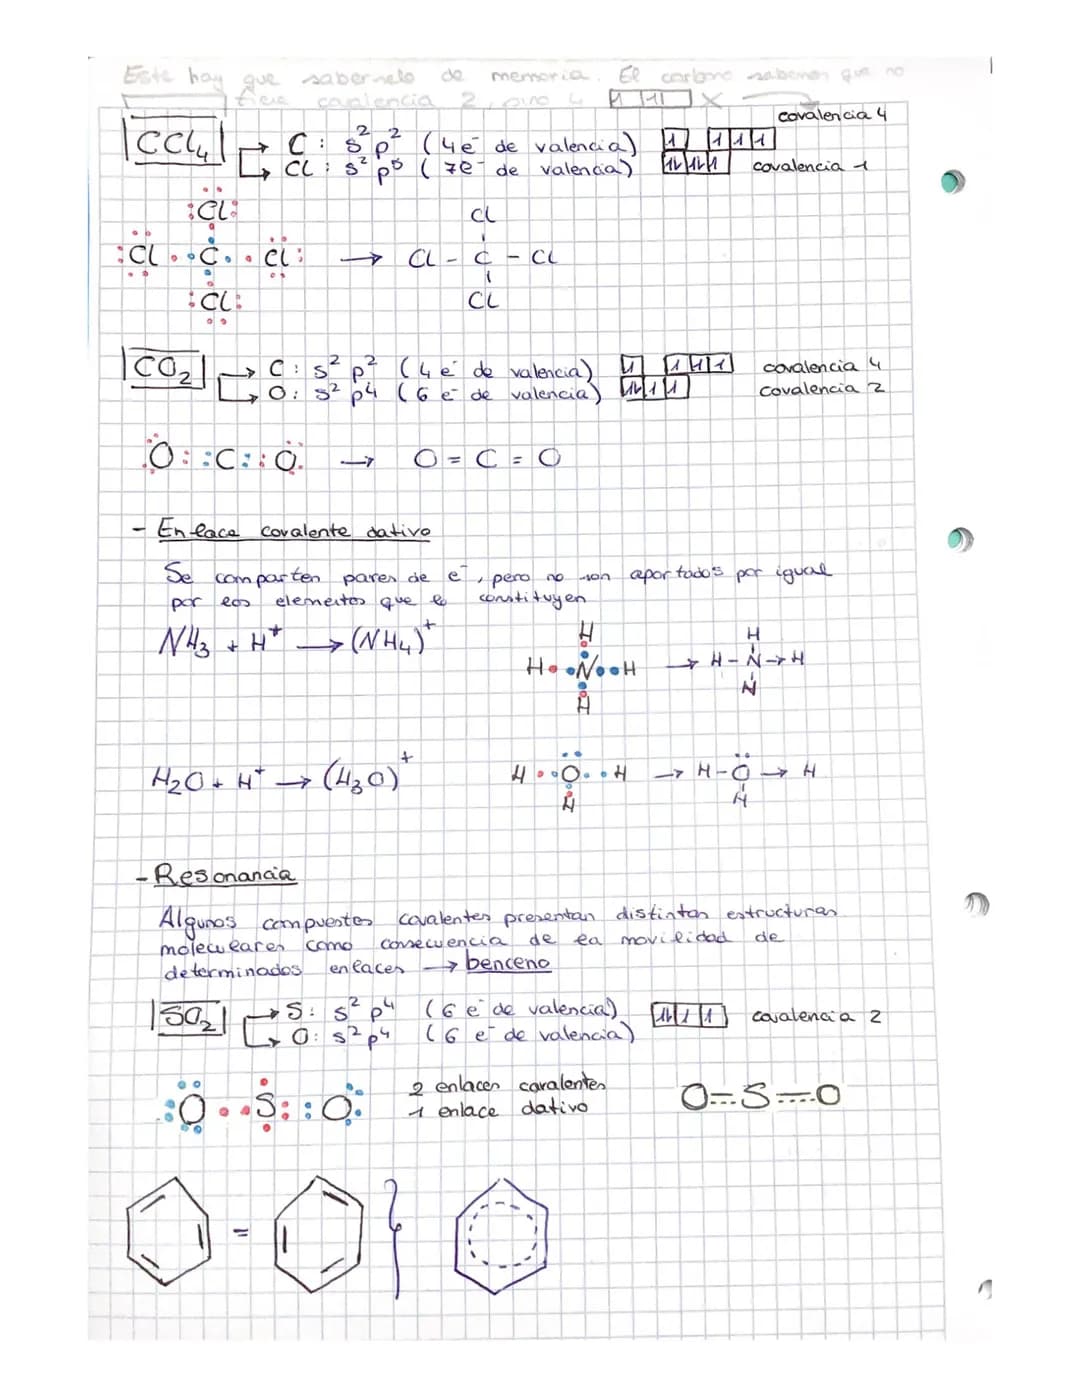 Este hay que sabernelo de memoria. El carbono sabemos que no
tiene covalencia 2, sino 4 1 1 X
covalencia 4
CCl4 → C: s² p² (4e⁻ de valencia) 1 1 1 1
→ Cl: s² p⁵ (7e⁻ de valencia) 1L 1L 1 covalencia 1
Cl Cl
Cl C Cl → Cl - C - Cl
Cl Cl
CO2 → C: s² p² (4e⁻ de valencia) 1 1 1 1 covalencia 4
→ O: s² p⁴ (6 e⁻ de valencia) 1L 1 1 covalencia 2
O::C::O → O = C = O
- Enlace covalente dativo
Se comparten pares de e⁻, pero no son aportados por igual
por los elementos que lo constituyen
NH3 + H⁺ → (NH4)⁺
H H
H N H → H - N → H
H N
H2O + H⁺ → (H3O)⁺
H O H → H - O → H
H H
- Resonancia
Algunos compuestos covalentes presentan distintas estructuras
moleculares como consecuencia de la movilidad de
determinados enlaces → benceno
SO2 → S: s² p⁴ (6 e⁻ de valencia) 1L 1 1 covalencia 2
→ O: s² p⁴ (6 e⁻ de valencia)
2 enlaces covalentes
O S::O O=S=O
1 enlace dativo
=